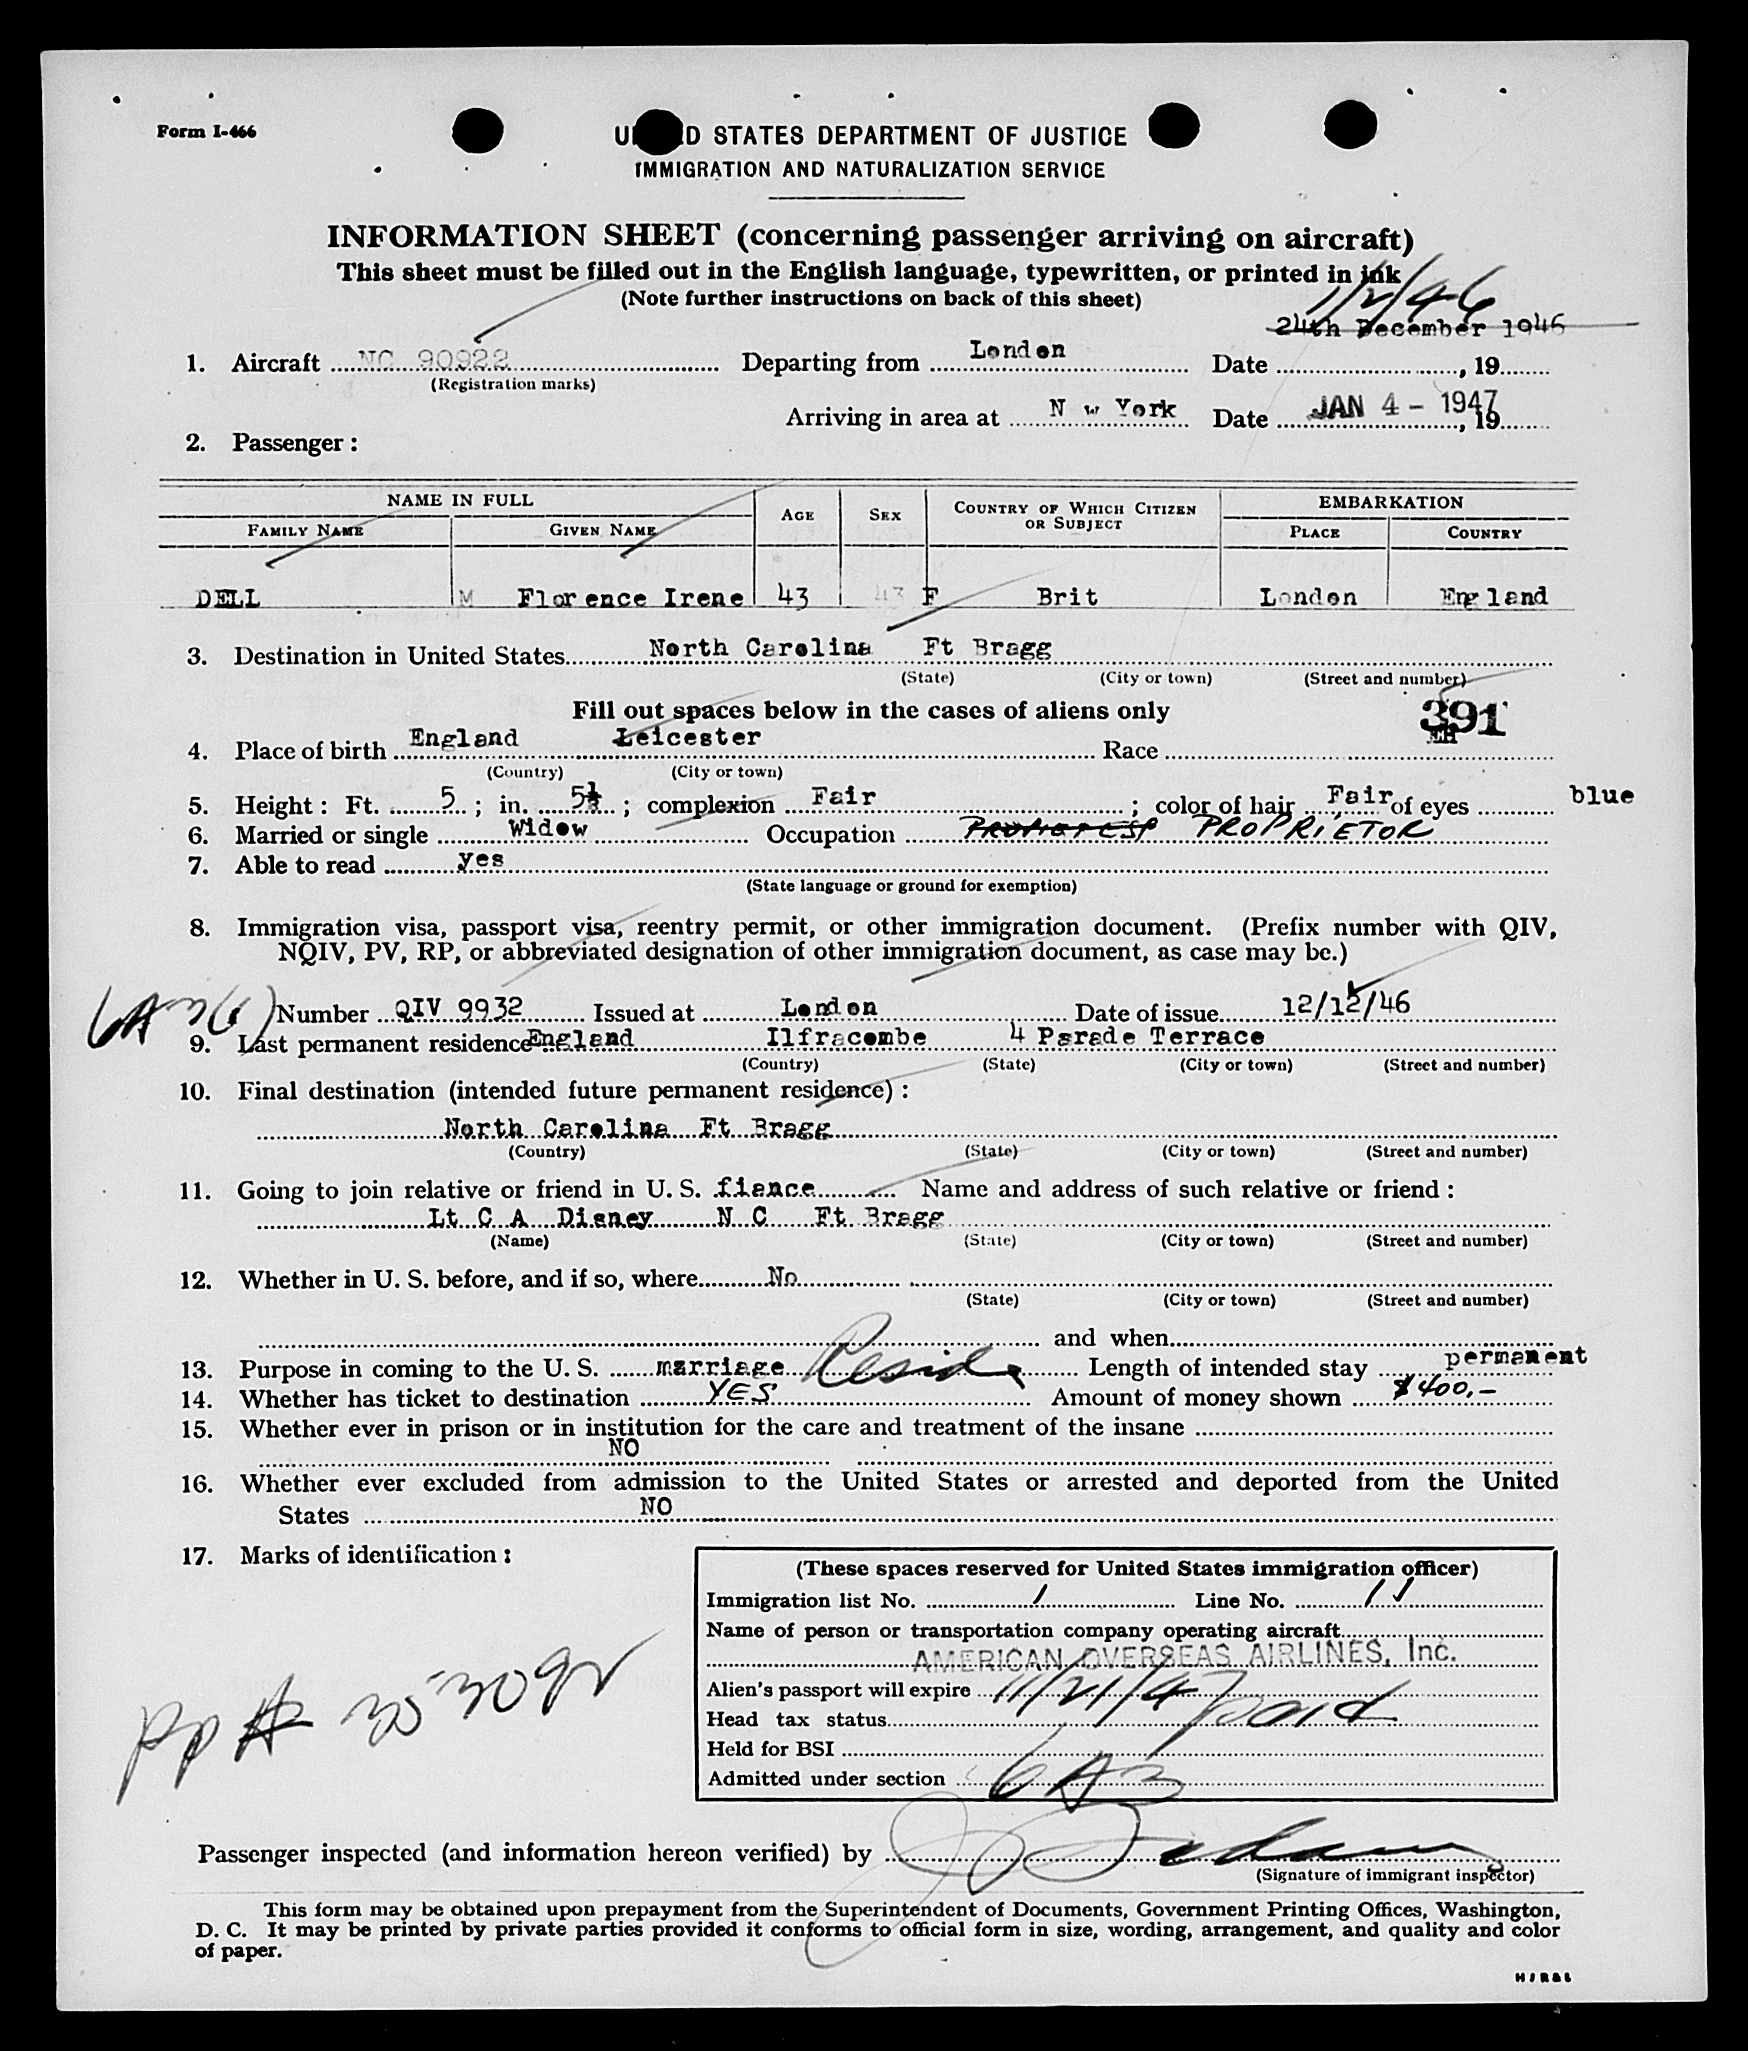 Form I-466
UNITED STATES DEPARTMENT OF JUSTICE
IMMIGRATION AND NATURALIZATION SERVICE
INFORMATION SHEET (concerning passenger arriving on aircraft)
This sheet must be filled out in the English language, typewritten, or printed in ink
(Note further instructions on back of this sheet)
1/2/46
24th December 1946
1. Aircraft NC 90922 Departing from London Date , 19
(Registration marks)
Arriving in area at N w York Date JAN 4 - 1947, 19
2. Passenger:
NAME IN FULL EMBARKATION
FAMILY NAME GIVEN NAME AGE SEX COUNTRY OF WHICH CITIZEN OR SUBJECT PLACE COUNTRY
DELL M Florence Irene 43 43 F Brit London England
3. Destination in United States North Carolina Ft Bragg
(State) (City or town) (Street and number)
Fill out spaces below in the cases of aliens only 391
4. Place of birth England Leicester Race
(Country) (City or town)
5. Height: Ft. 5 ; in. 5½ ; complexion Fair ; color of hair Fair of eyes blue
6. Married or single Widow Occupation PROPRIETOR
7. Able to read yes
(State language or ground for exemption)
8. Immigration visa, passport visa, reentry permit, or other immigration document. (Prefix number with QIV,
NQIV, PV, RP, or abbreviated designation of other immigration document, as case may be.)
Number QIV 9932 Issued at London Date of issue 12/12/46
9. Last permanent residence England Ilfracombe 4 Parade Terrace
(Country) (State) (City or town) (Street and number)
10. Final destination (intended future permanent residence) :
North Carolina Ft Bragg
(Country) (State) (City or town) (Street and number)
11. Going to join relative or friend in U. S. fiance Name and address of such relative or friend :
Lt C A Disney N C Ft Bragg
(Name) (State) (City or town) (Street and number)
12. Whether in U. S. before, and if so, where No
(State) (City or town) (Street and number)
and when
13. Purpose in coming to the U. S. marriage Reside Length of intended stay permanent
14. Whether has ticket to destination YES Amount of money shown $400.-
15. Whether ever in prison or in institution for the care and treatment of the insane
NO
16. Whether ever excluded from admission to the United States or arrested and deported from the United
States NO
17. Marks of identification :
(These spaces reserved for United States immigration officer)
Immigration list No. 1 Line No. 11
Name of person or transportation company operating aircraft
AMERICAN OVERSEAS AIRLINES, Inc.
Alien's passport will expire 11/21/47
Head tax status paid
Held for BSI
Admitted under section 6A3
Passenger inspected (and information hereon verified) by
(Signature of immigrant inspector)
This form may be obtained upon prepayment from the Superintendent of Documents, Government Printing Offices, Washington,
D. C. It may be printed by private parties provided it conforms to official form in size, wording, arrangement, and quality and color
of paper.